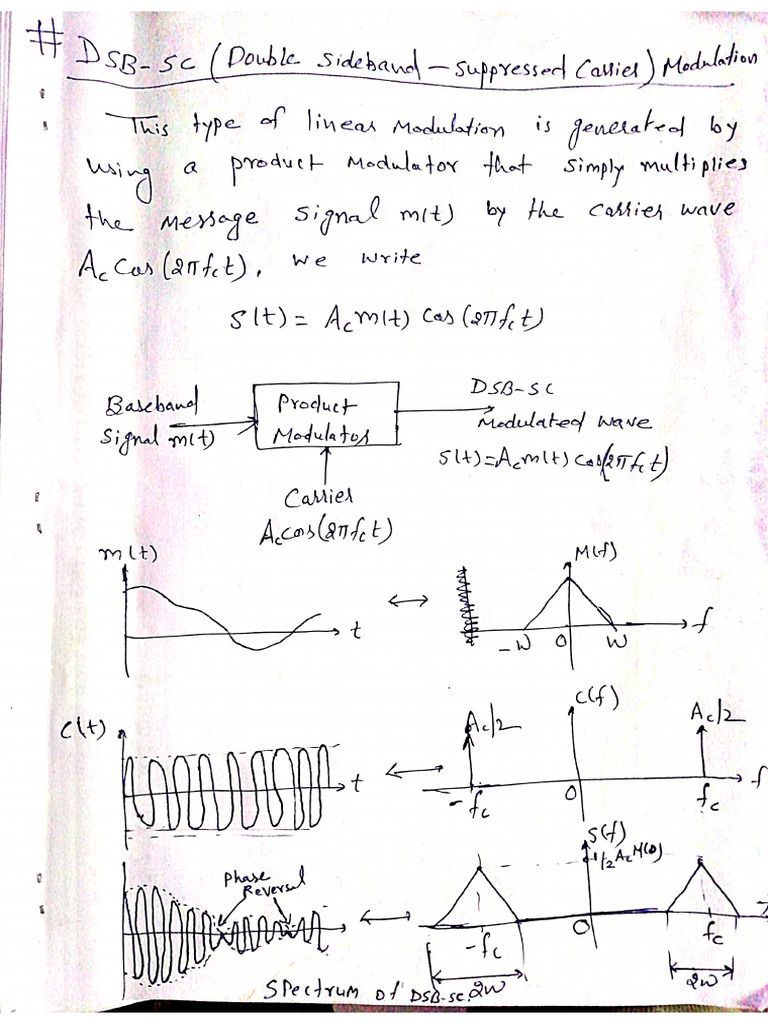 # DSB-SC (Double Sideband-Suppressed Carrier) Modulation
This type of linear Modulation is generated by
using a product Modulator that simply multiplies
the message signal m(t) by the carrier wave
Ac Cos(2πfct), we write
S(t) = Ac m(t) Cos(2πfct)
Baseband
Signal m(t)
Product
Modulator
DSB-SC
Modulated wave
S(t)=Ac m(t) cos(2πfct)
Carrier
Ac cos(2πfct)
m(t)
t
↔
M(f)
-W 0 W
f
C(t)
t
↔
C(f)
Ac/2
Ac/2
-fc 0 fc
f
Phase
Reversal
↔
S(f)
1/2 Ac M(0)
-fc 0 fc
f
2W
2W
Spectrum of DSB-SC